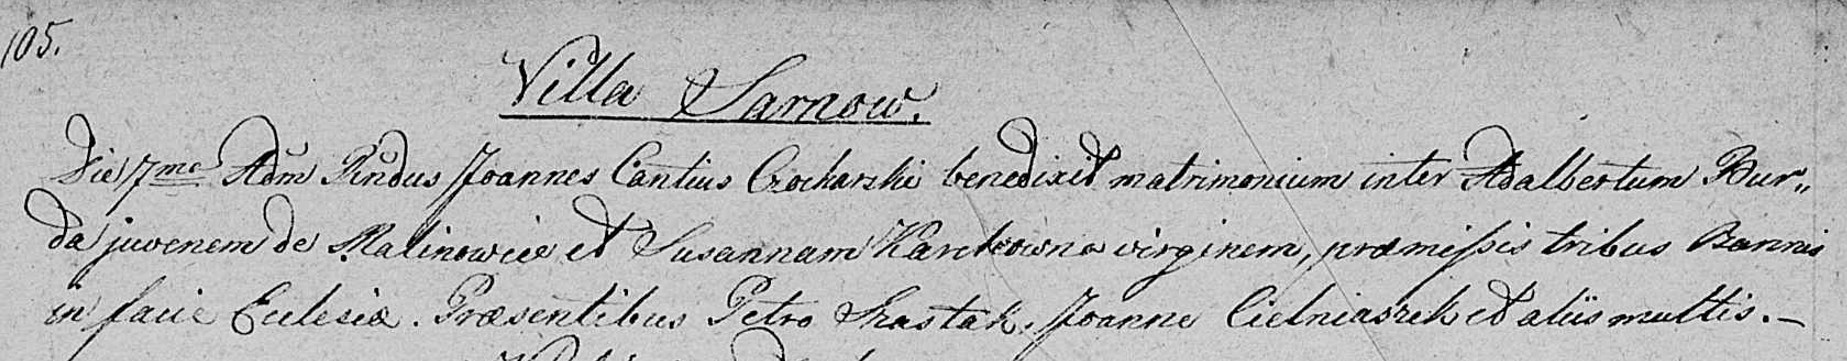 105.
Villa Sarnow.
Die 7me Adm Rndus Joannes Cantius Czocharski benedixit matrimonium inter Adalbertum Bur„
da juvenem de Malinowice et Susannam virginem, præmissis tribus Bannis
in facie Ecclesiæ. Præsentibus Petro Szastak. Joanne Cielniaszek et aliis multis. —